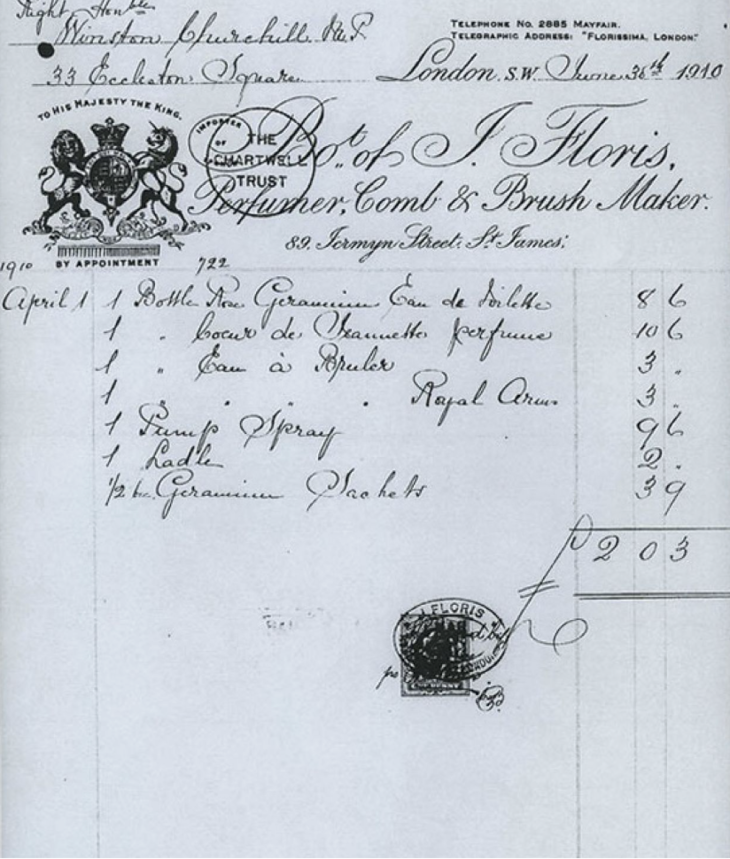 Right Honble
Winston Churchill M.P.
33 Eccleston Square
TELEPHONE No. 2885 MAYFAIR.
TELEGRAPHIC ADDRESS: "FLORISSIMA, LONDON."
London. S.W. June 30th 1910
TO HIS MAJESTY THE KING.
BY APPOINTMENT
IMPORTER OF
THE CHARTWELL TRUST
Bot. of J. Floris,
Perfumer, Comb & Brush Maker.
89, Jermyn Street, St James,
1910 722
April 1 1 Bottle Rose Geranium Eau de Toilette 8 6
1 " Coeur de Jeannette perfume 10 6
1 " Eau à Bruler 3 "
1 " " " " Royal Arms 3 "
1 Pump Spray 9 6
1 Ladle 2 "
1/2 Geranium Sachets 3 9
£ 2 0 3
J. FLORIS